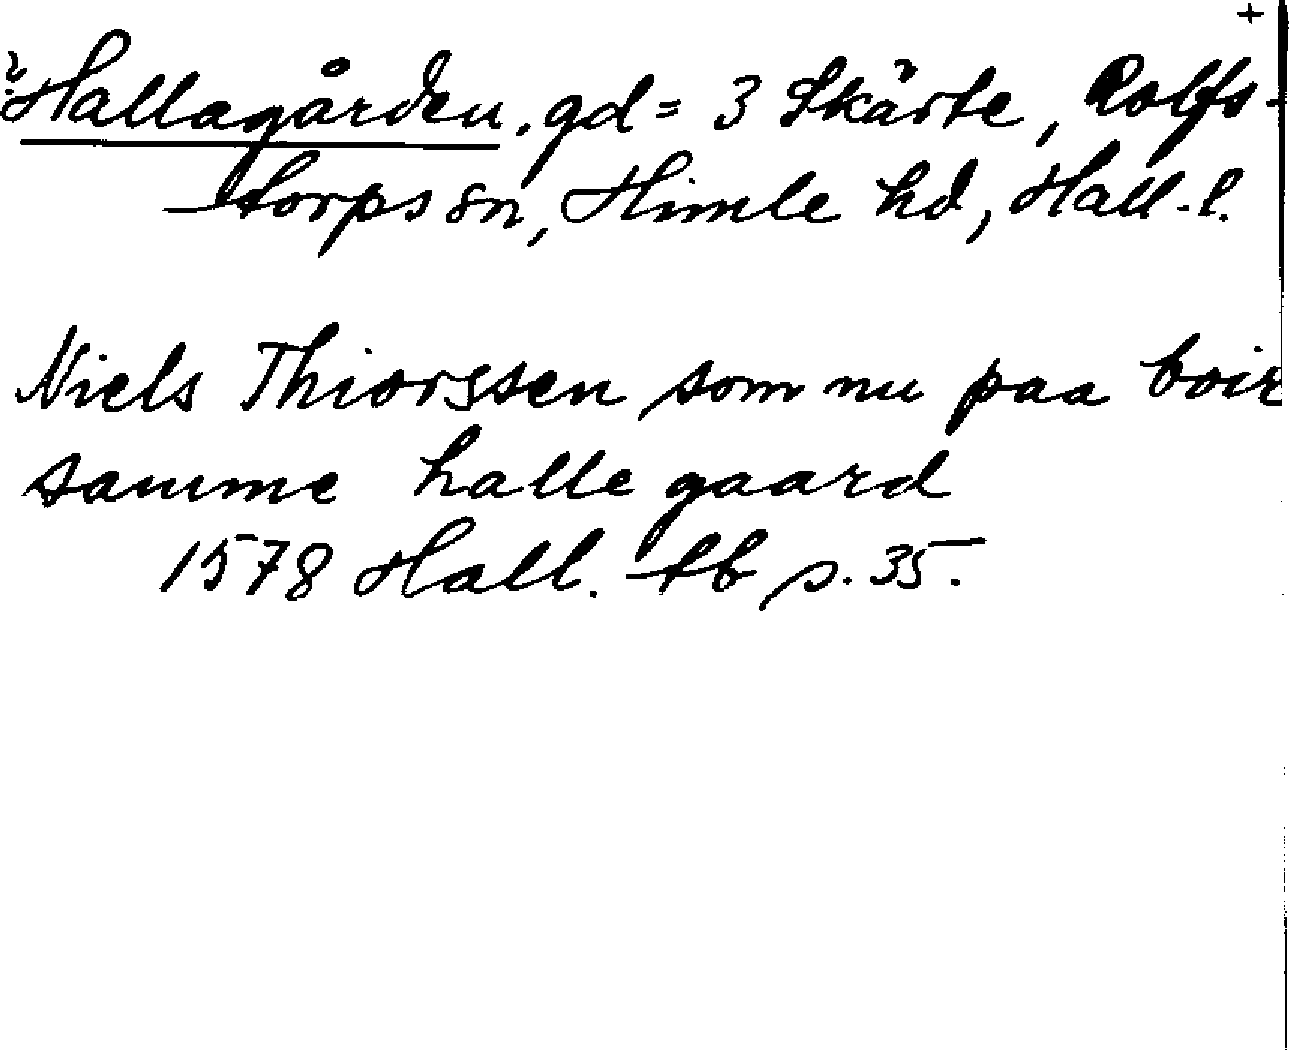 +
? Hallagården, gd = 3 Skärte, Rolfs-
torps sn, Himle hd, Hall. l.
Niels Thiorssen som nu paa boir
samme halle gaard
1578 Hall. tb s. 35.